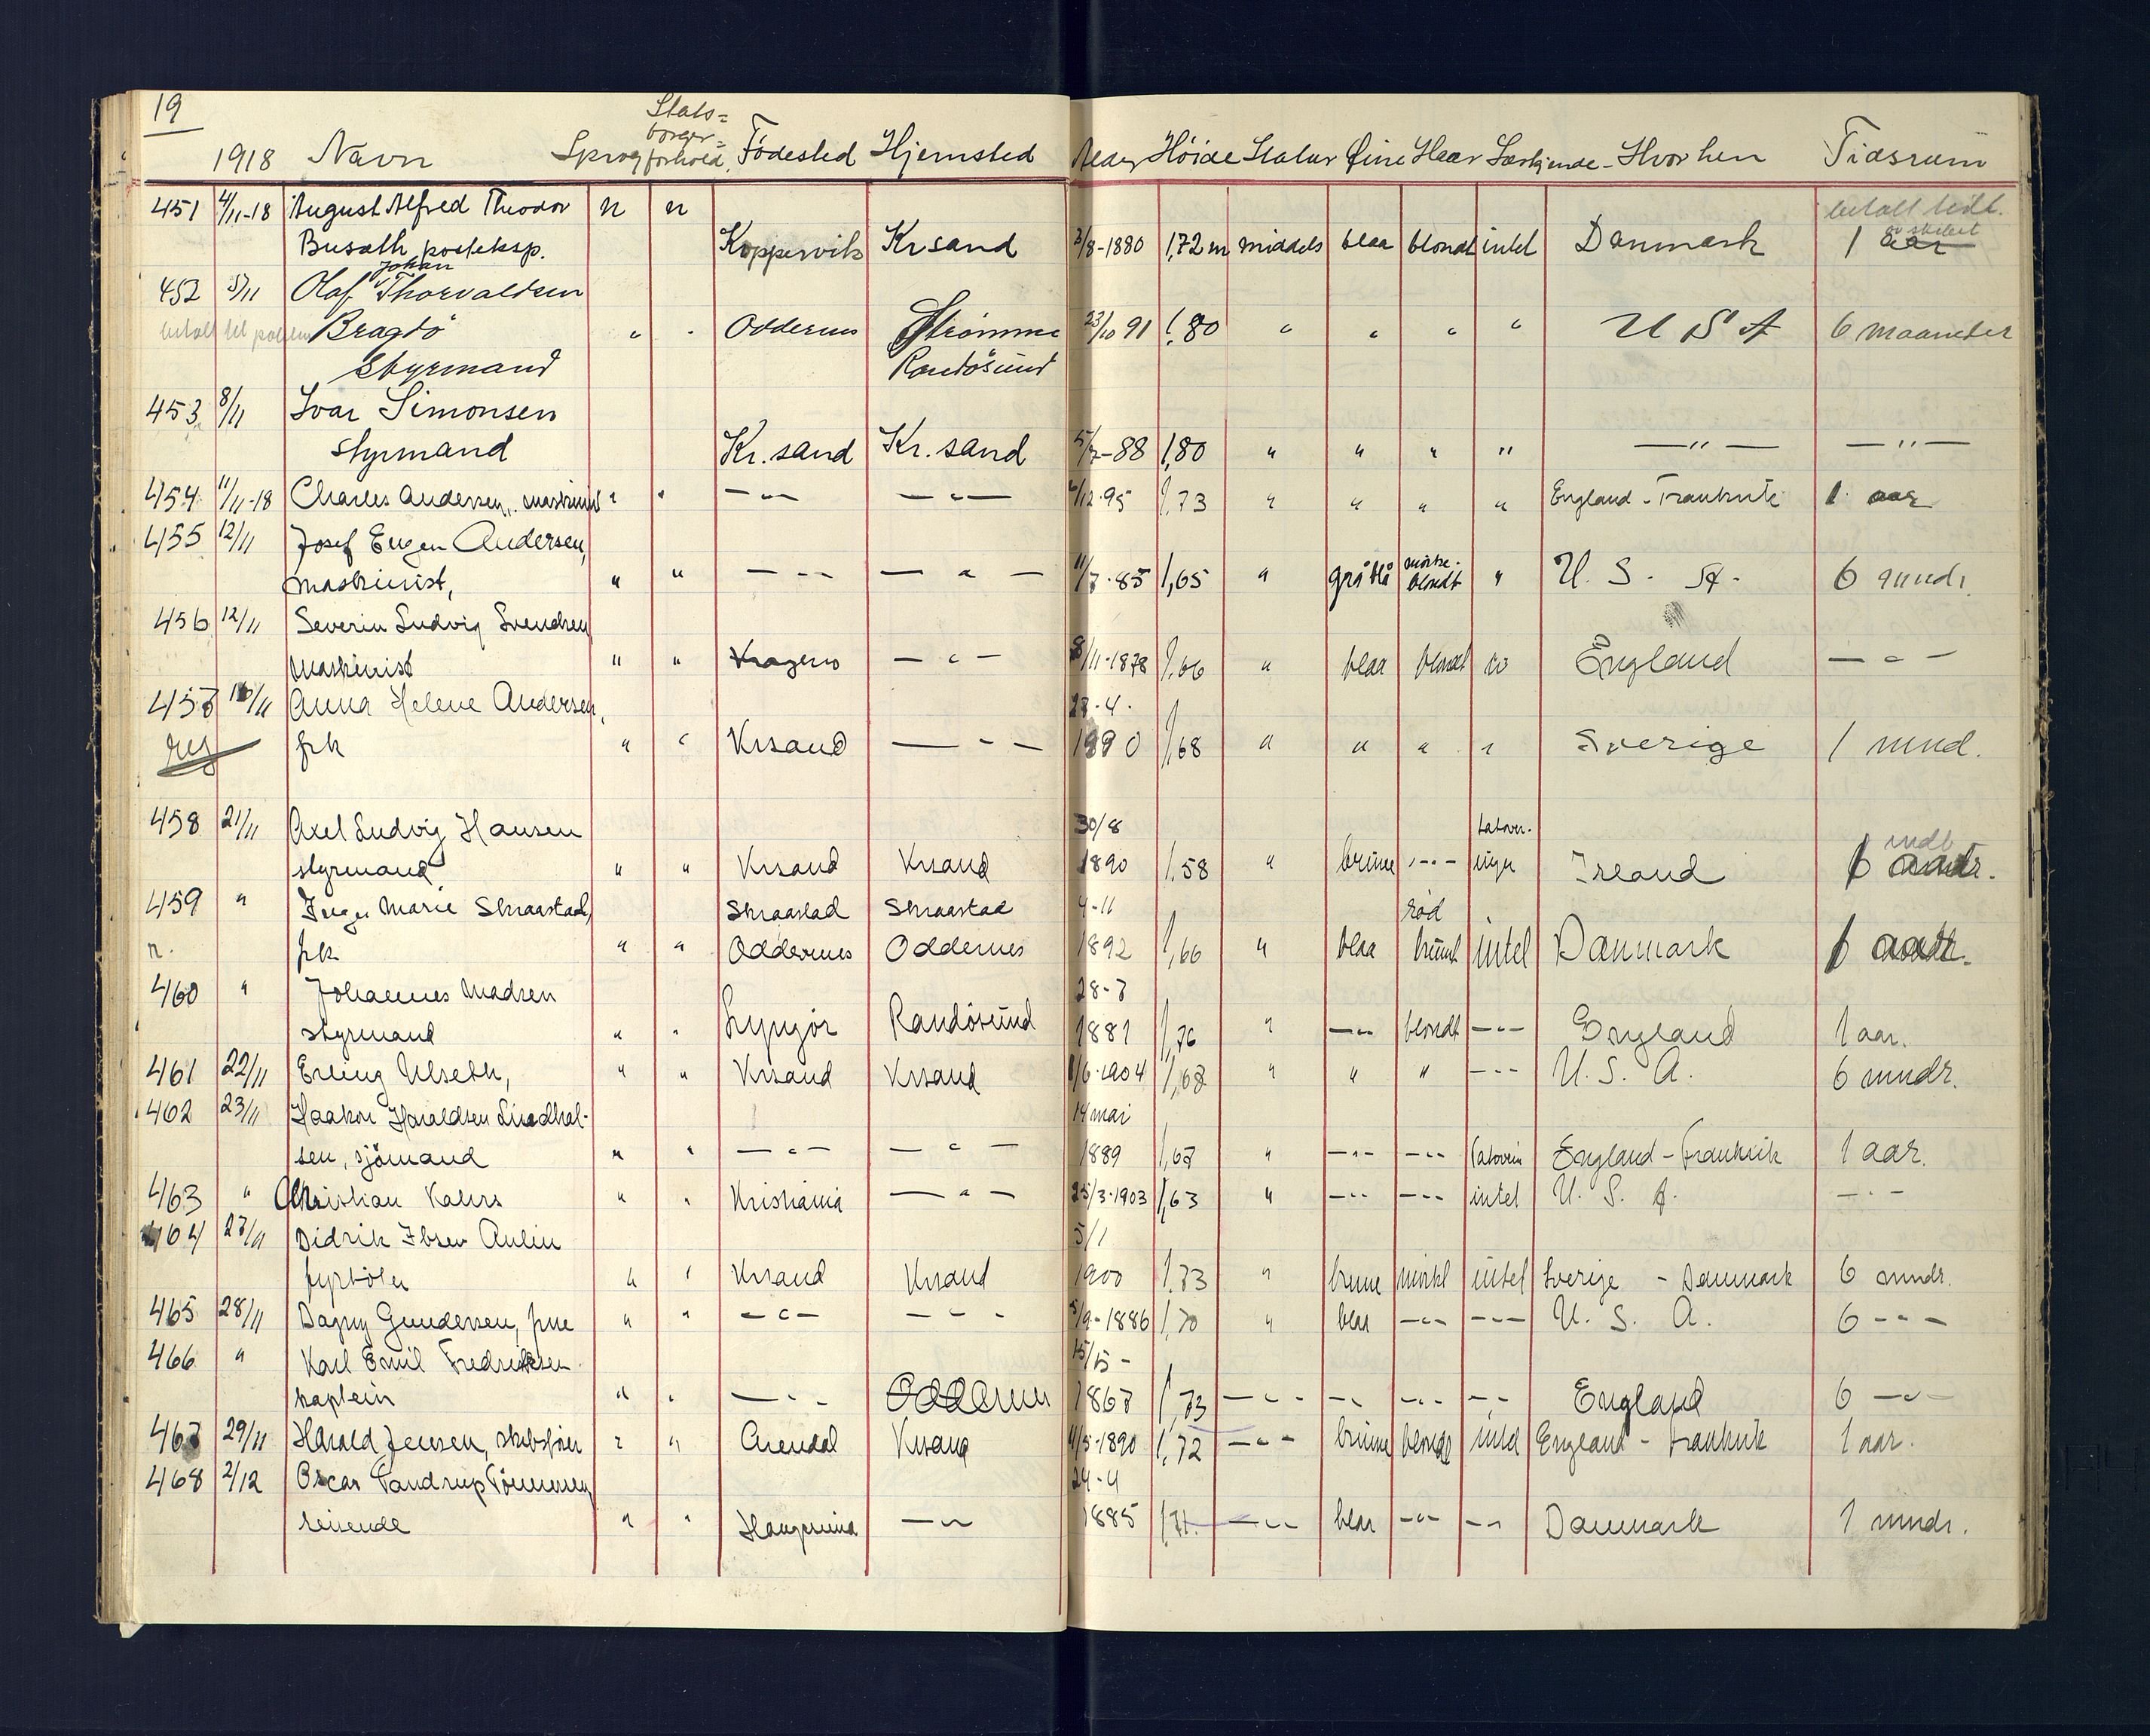 19
1918 Navn Sprog Stats= borger= forhold. Fødested Hjemsted Alder Høide Statur Øine Haar Særkjende Hvorhen Tidsrum
451 4/11-18 August Alfred Theodor n n betalt tidl.
Busath posteksp. Koppervik Krsand 3/8-1880 1,72 m middels blaa blondt intet Danmark 1 aar
Johan
452 5/11 Olaf Thorvaldsen
betalt til Bragdø " " Oddernes Strømme 23/10 91 1,80 " " " " U S A 6 maaneder
Styrmand Randøsund
453 8/11 Ivar Simonsen
styrmand Kr.sand Kr.sand 5/7-88 1,80 " " " " — " — — " —
454 11/11-18 Charles Andersen, maskinist " " — " — — " — /12-95 1,73 " " " " England - Frankrik 1 aar
455 12/11 Josef Eugen Andersen,
maskinist, " " — " — — " — 11/7-85 1,65 " gråblå mørke-blondt " U. S. A. 6 mndr.
456 12/11 Severin Ludvig Svendsen
maskinist " " Kragerø — " — 8/11-1878 1,66 " blaa blondt " England — " —
457 /11 Anna Helene Andersen, 27-4-
frk " " Krsand — " — 1890 1,68 " " " " Sverige 1 mnd.
458 21/11 Axel Ludvig Hansen 30/8 tatover- mdt
styrmand " " Krsand Krsand 1890 1,58 " brune — " — inger Irland 6
459 " Inger Marie Skraastad, Skraastad Skraastad 4-11 rød
n. frk " " Oddernes Oddernes 1892 1,66 " blaa brunt intet Danmark 6
460 " Johannes Madsen 28-7
styrmand " " Lyngør Randøsund 1881 1,76 " — " — blondt — " — England 1 aar.
461 22/11 Erling Ulseth, " " Krsand Krsand 1/6-1904 1,68 " " " — " — U. S. A. 6 mndr.
462 23/11 Haakon Haraldsen Lindhol- 14 mai
sen, sjømand " " — " — — " — 1889 1,67 " — " — — " — tatovein England - Frankrik 1 aar.
463 " Christian Kahrs " " Kristiania — " — 25/3-1903 1,63 " — " — — " — intet U. S. A. — " —
464 27/11 Didrik Ibsen Aulin 5/1
fyrbøter " " Krsand Krsand 1900 1,73 " brune mørkt intet Sverige - Danmark 6 mndr.
465 28/11 Dagny Gundersen, frue " " — " — — " — 5/9-1886 1,70 " blaa — " — — " — U. S. A. 6 — " —
466 " Karl Emil Fredriksen 15/
kaptein " " — " — Oddernes 1867 1,73 — " — — " — — " — — " — England 6 — " —
467 29/11 Harald Jensen, skibsfører " " Arendal Krsand 4/5-1890 1,72 — " — brune blonde intet England - Frankrik 1 aar.
468 2/12 Oscar Tandrup Tønnesen 24-4
reisende " " Haugesund — " — 1885 1,71. — " — blaa — " — — " — Danmark 1 mndr.